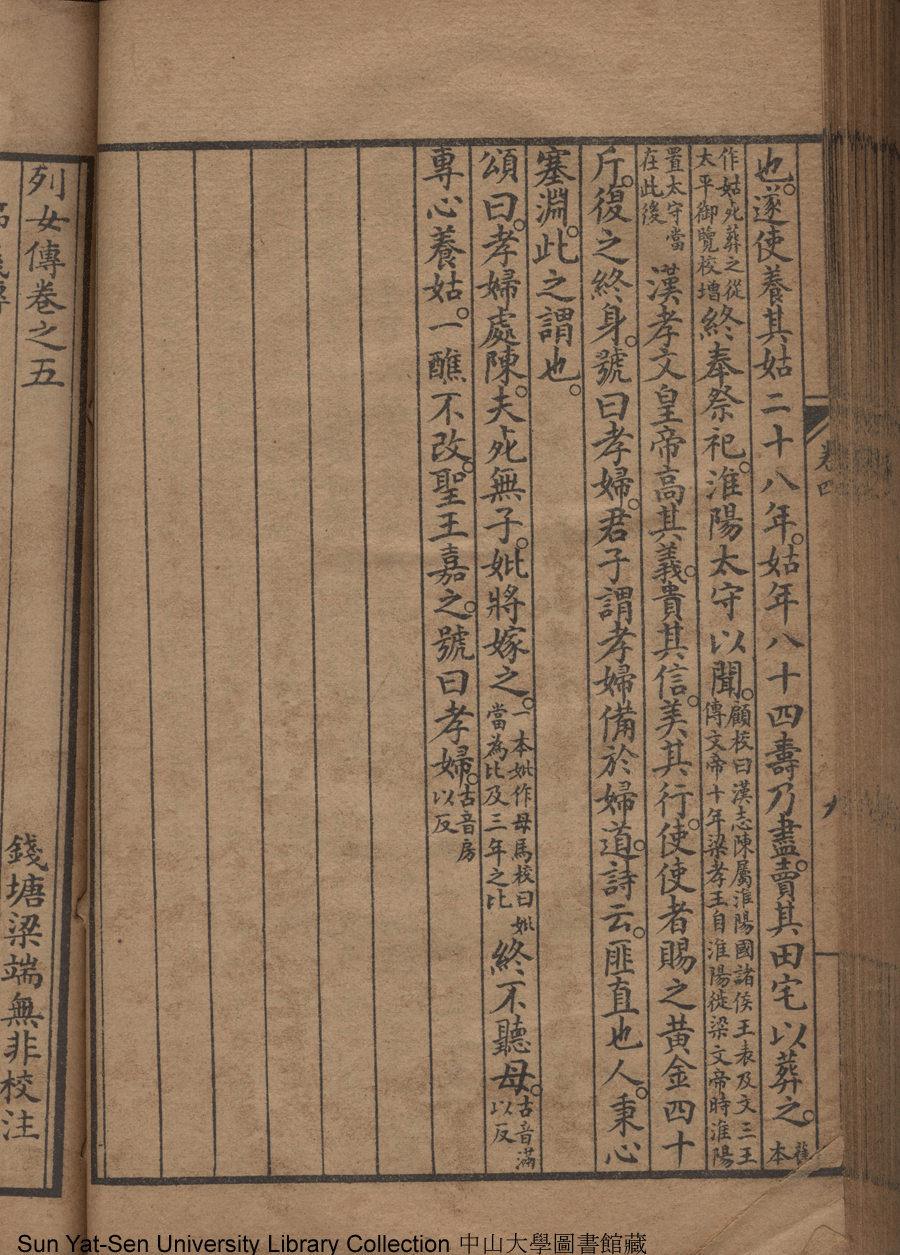 卷四
也。遂使養其姑二十八年。姑年八十四壽乃盡。賣其田宅以葬之。舊本
作姑死葬之從太平御覽校增終奉祭祀。淮陽太守以聞。顧校曰漢志陳屬淮陽國諸侯王表及文三王傳文帝十年梁孝王自淮陽徙梁文帝時淮陽
置太守當在此後 漢孝文皇帝高其義。貴其信。美其行。使使者賜之黃金四十
斤。復之終身。號曰孝婦。君子謂孝婦備於婦道。詩云。匪直也人。秉心
塞淵。此之謂也。
頌曰。孝婦處陳。夫死無子。妣將嫁之。一本妣作母馬校曰妣當為比及三年之比 終不聽母。古音滿以反
專心養姑。一醮不改。聖王嘉之。號曰孝婦。古音房以反
列女傳卷之五
錢塘梁端無非校注
Sun Yat-Sen University Library Collection 中山大學圖書館藏